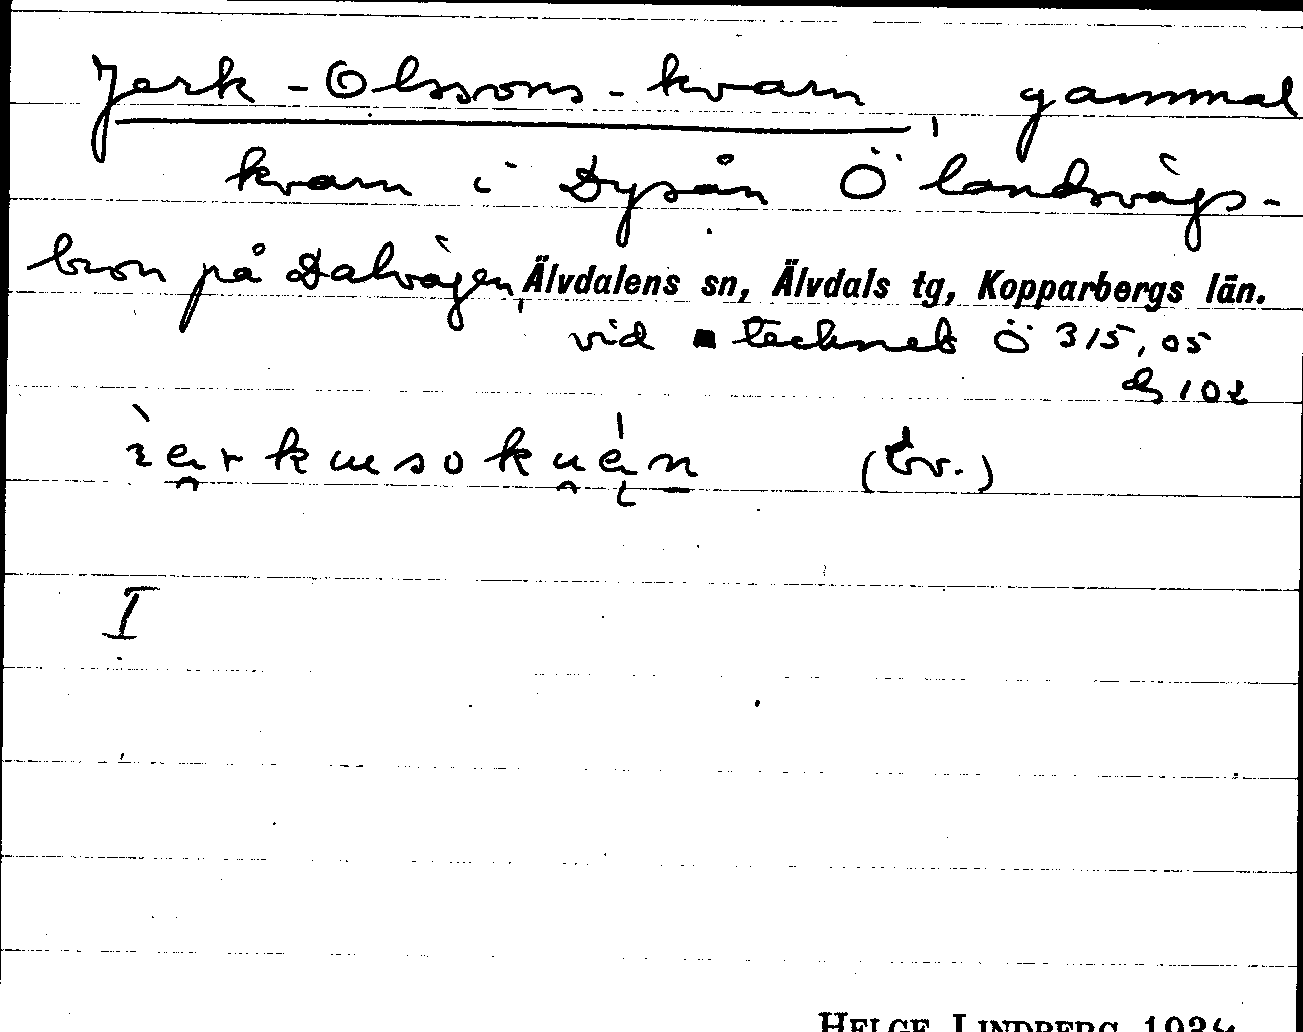 Jerk-Olssons-kvarn, gammal
kvarn i Dysån Ö landsvägs-
bron på Dalvägen, Älvdalens sn, Älvdals tg, Kopparbergs län.
vid tecknet Ö 315,05
102
I
HELGE LINDBERG 193